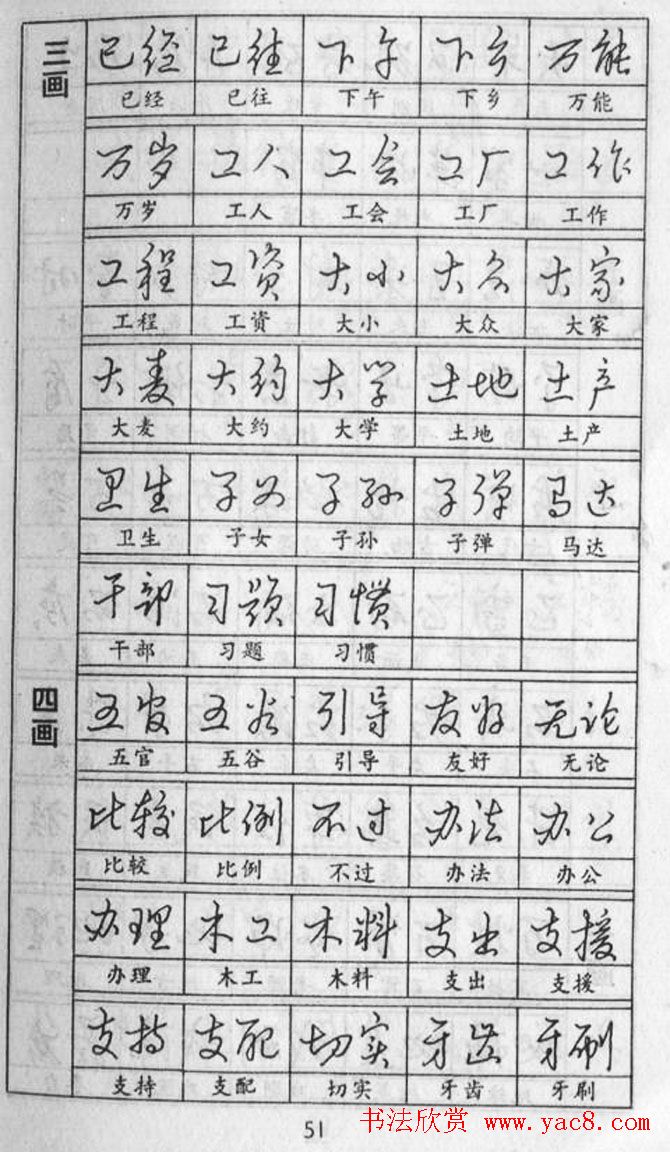 三画
已经 已往 下午 下乡 万能
已经 已往 下午 下乡 万能
万岁 工人 工会 工厂 工作
万岁 工人 工会 工厂 工作
工程 工资 大小 大众 大家
工程 工資 大小 大众 大家
大麦 大约 大学 土地 土产
大麦 大约 大学 土地 土产
卫生 子女 子孙 子弹 马达
卫生 子女 子孙 子弹 马达
干部 习题 习惯
干部 习题 习惯
四画
五官 五谷 引导 友好 无论
五官 五谷 引导 友好 无论
比较 比例 不过 办法 办公
比较 比例 不过 办法 办公
办理 木工 木料 支出 支援
办理 木工 木料 支出 支援
支持 支配 切实 牙齿 牙刷
支持 支配 切实 牙齿 牙刷
51
书法欣赏 www.yac8.com